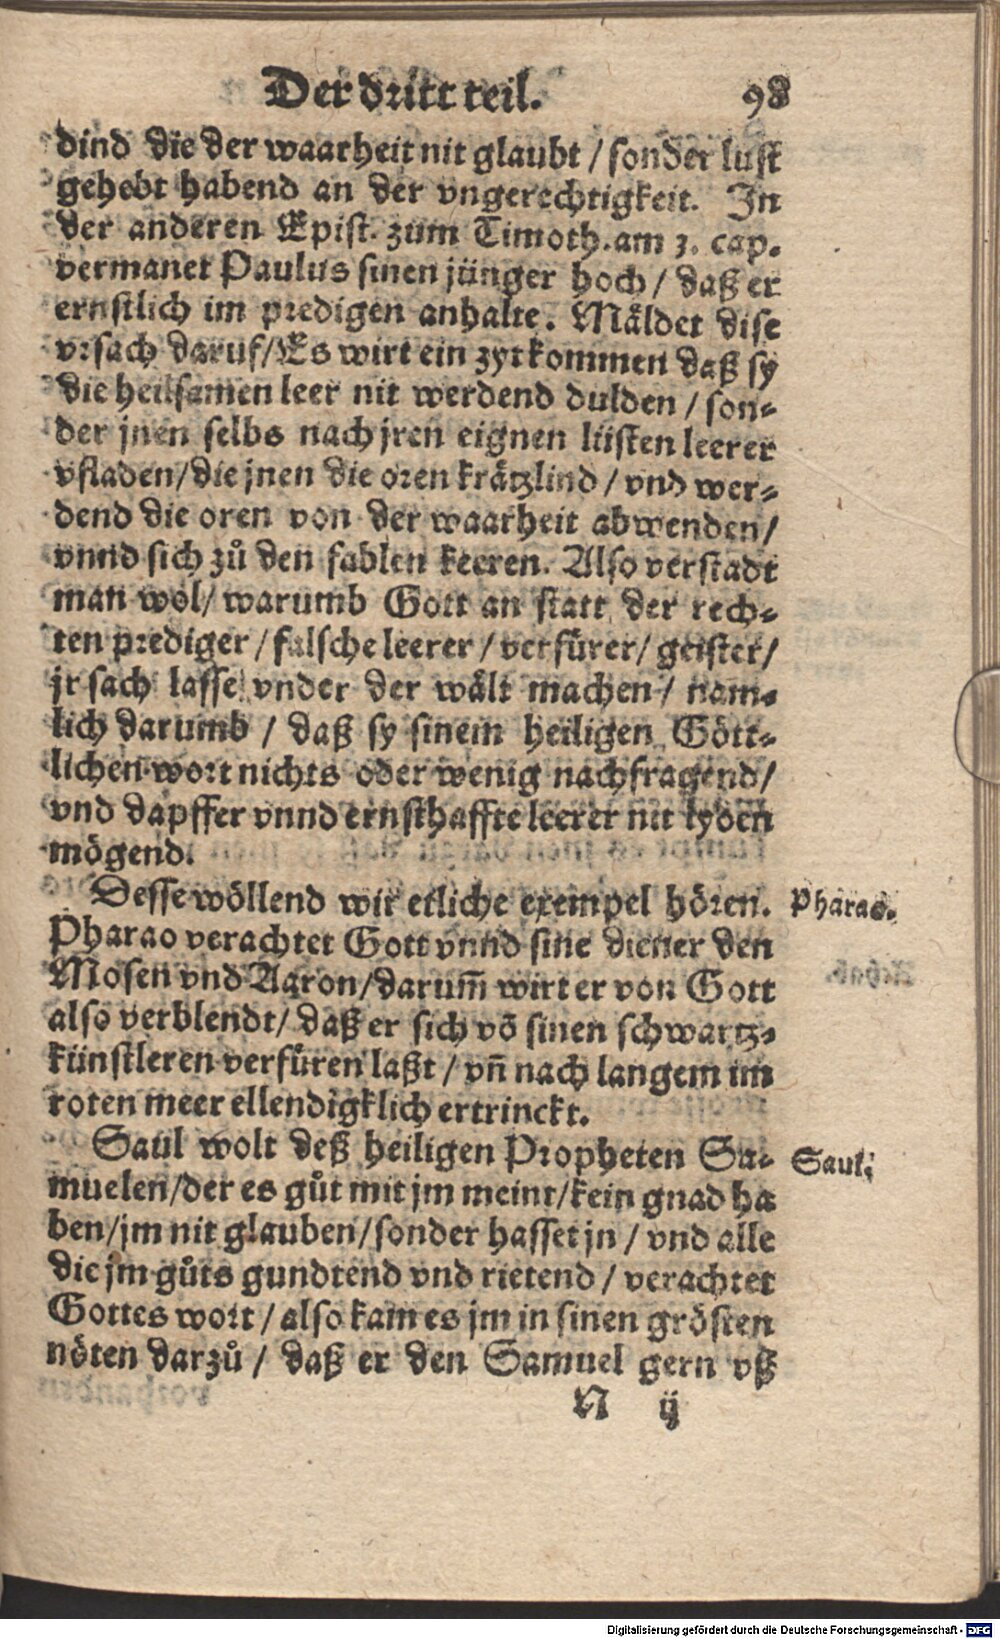 Der dritt teil. 98
dind die der waarheit nit glaubt / sonder lust
gehebt habend an der vngerechtigkeit. In
der anderen Epist. zum Timoth. am 3. cap.
vermanet Paulus sinen jünger hoch / daß er
ernstlich im predigen anhalte. Mäldet dise
vrsach daruf / Es wirt ein zyt kommen daß sy
die heilsamen leer nit werdend dulden / son-
der jnen selbs nach jren eignen lüsten leerer
vfladen / die jnen die oren krätzlind / vnd wer-
dend die oren von der waarheit abwenden /
vnnd sich zů den fablen keeren. Also verstadt
man wol / warumb Gott an statt der rech-
ten prediger / falsche leerer / verfürer / geister /
jr sach lasse vnder der wält machen / nam-
lich darumb / daß sy sinem heiligen Gött-
lichen wort nichts oder wenig nachfragend /
vnd dapffer vnnd ernsthaffte leerer nit lyden
mögend.
Desse wöllend wir etliche exempel hören. Pharao.
Pharao verachtet Gott vnnd sine diener den
Mosen vnd Aaron / darum̄ wirt er von Gott
also verblendt / daß er sich vō sinen schwartz-
künstleren verfüren laßt / vn̄ nach langem im
roten meer ellendigklich ertrinckt.
Saul wolt deß heiligen Propheten Sa- Saul.
muelen / der es gůt mit jm meint / kein gnad ha
ben / jm nit glauben / sonder hasset jn / vnd alle
die jm gůts gundtend vnd rietend / verachtet
Gottes wort / also kam es jm in sinen grösten
nöten darzů / daß er den Samuel gern vß
N ij
Digitalisierung gefördert durch die Deutsche Forschungsgemeinschaft - DFG